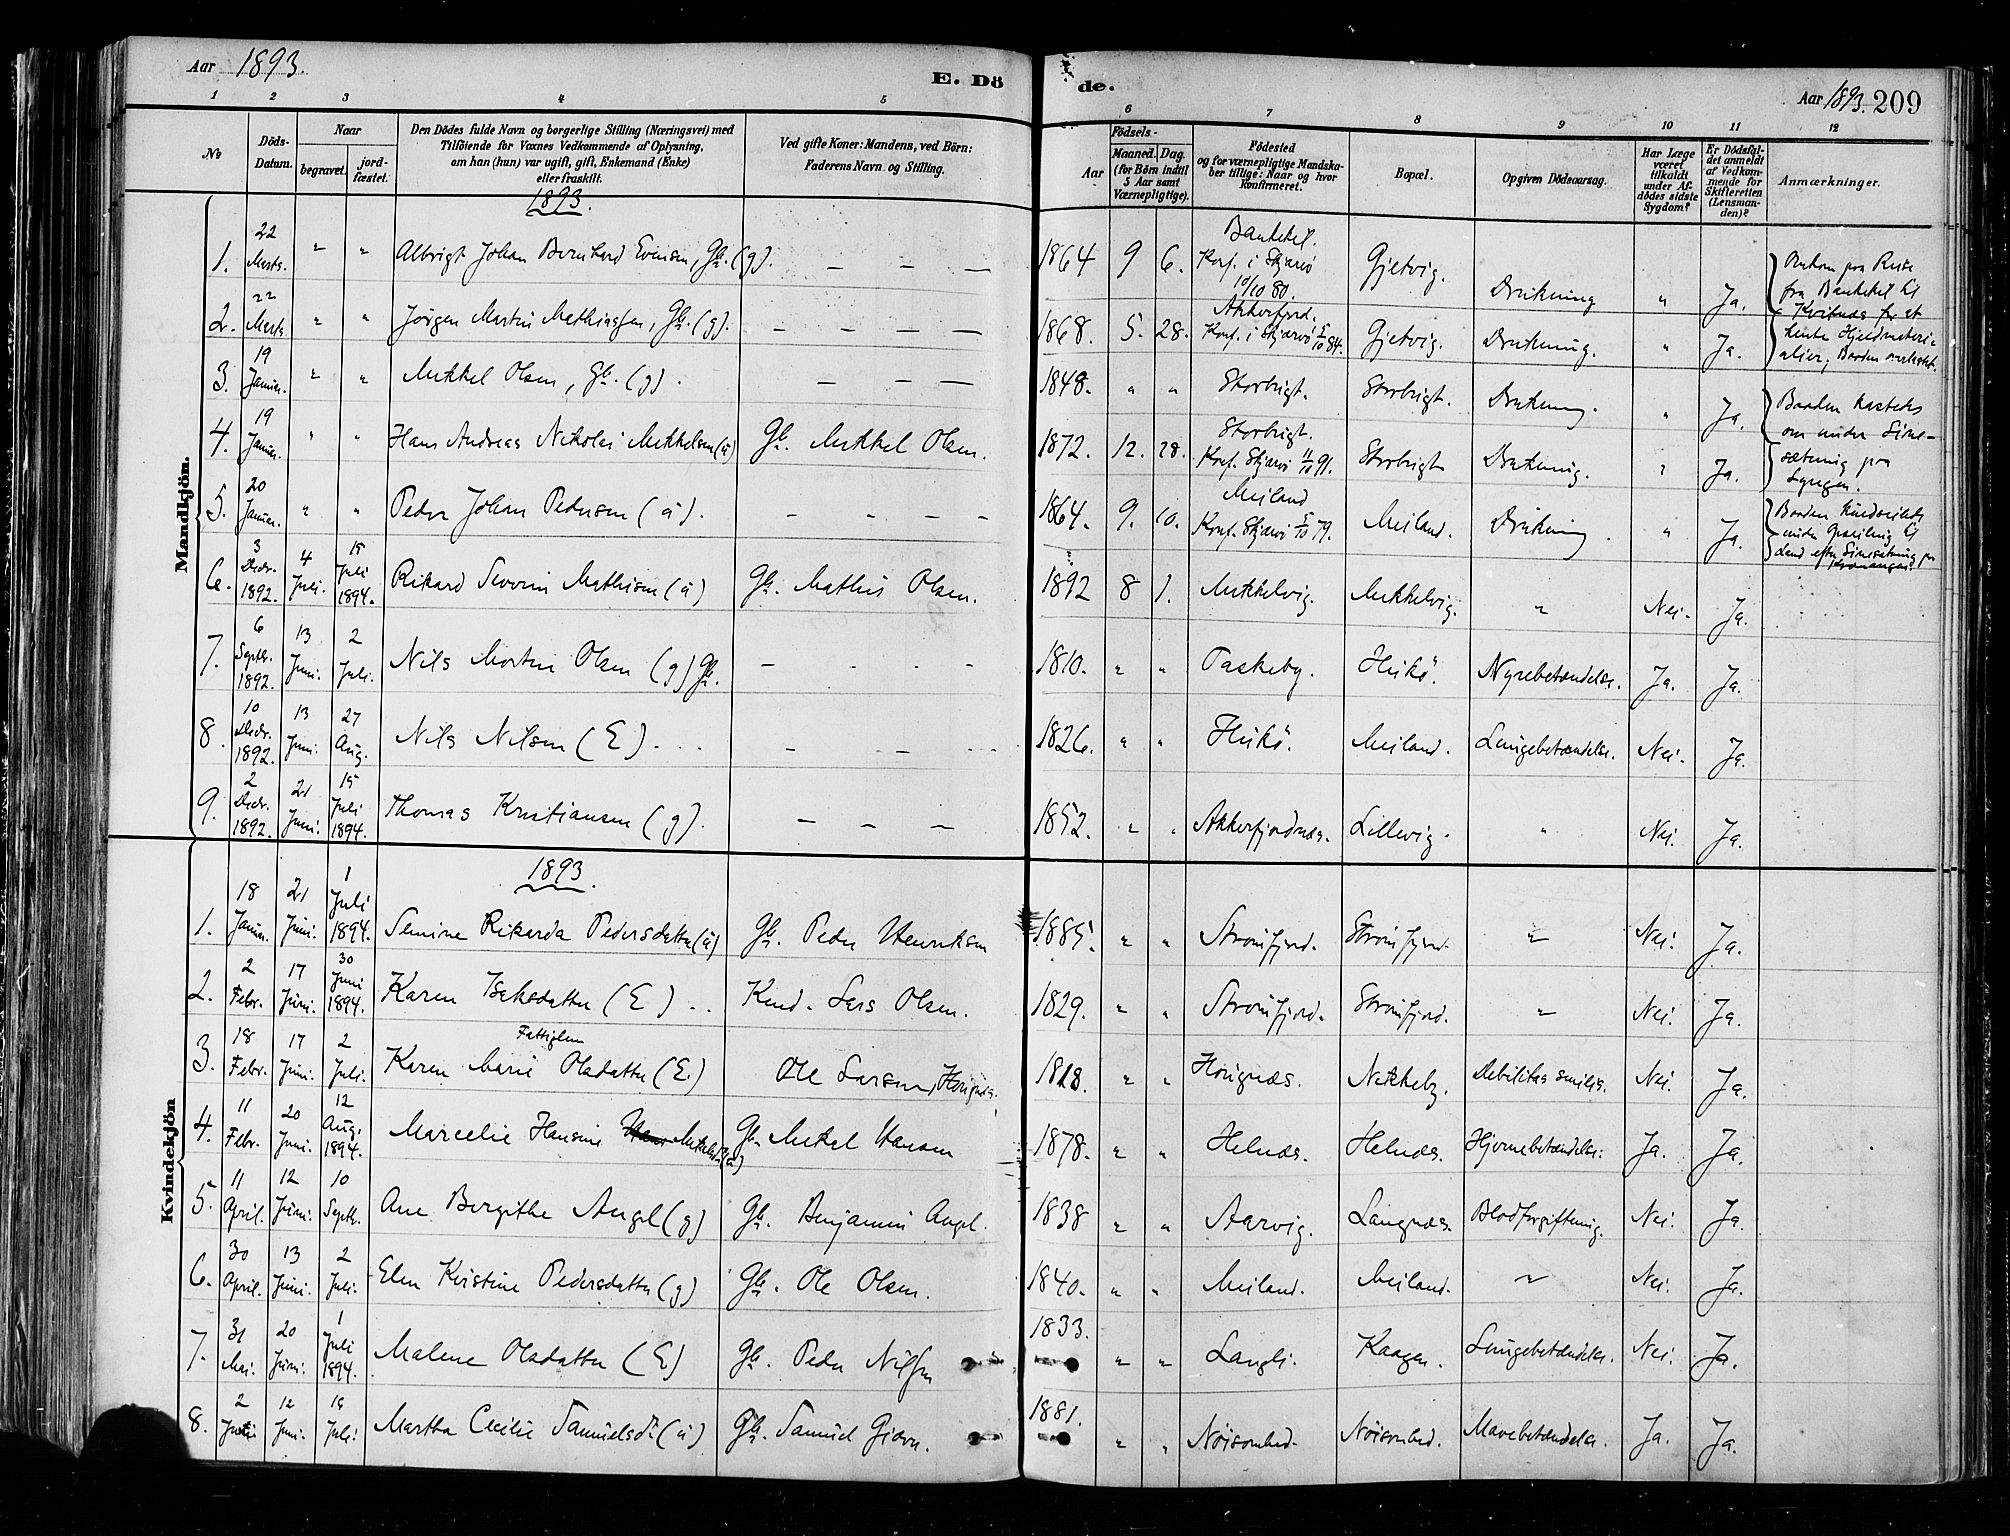 Aar 1893.
E. Dö
de.
Aar 1893. 209
1 2 3 4 5 6 7 8 9 10 11 12
No
Döds-
Datum.
Naar
begravet.
jord-
fæstet.
Den Dödes fulde Navn og borgerlige Stilling (Næringsvei) med
Tilföiende for Voxnes Vedkommende af Oplysning,
om han (hun) var ugift, gift, Enkemand (Enke)
eller fraskilt.
Ved gifte Koner: Mandens, ved Börn:
Faderens Navn og Stilling.
Födsels-
Aar
Maaned. Dag.
(for Börn indtil
5 Aar samt
Værnepligtige).
Födested
og for værnepligtige Mandska-
ber tillige: Naar og hvor
konfirmeret.
Bopæl.
Opgiven Dödsaarsag.
Har Læge
været
tilkaldt
under Af-
dödes sidste
Sygdom?
Er Dödsfal-
det anmeldt
af Vedkom-
mende for
Skifteretten
(Lensman-
den)?
Anmærkninger.
Mandkjön.
1893.
1. 22 Marts. " " Albrigt Johan Bernhard Evensen, Gb. (g). — — — 1864 9 6. Bankekel. Konf. i Skjærvö 10/10 80. Gjetvig. Drukning " Ja.
2. 22 Marts " " Jörgen Martin Mathiassen, Gb. (g). — — — — 1868. 5. 28. Akkarfjord. Konf. i Skjærvö 5/10 84. Gjetvig. Drukning. " Ja.
paa Reise
fra Bankekel til
Kvitnæs for at
hente Hjeldmateri-
alier; Baaden
3. 19 Januar. " " Mikkel Olsen, Gb. (g). — — — 1848. " " Storbugt. Storbugt. Drukning. " Ja.
4. 19 Januar. " " Hans Andreas Nikolai Mikkelsen (u) Gb. Mikkel Olsen. 1872. 12. 28. Storbugt. Konf. Skjærvö 11/10 91. Storbugt Drukning. " Ja.
Baaden kastedes
om under Line-
sætning paa
Lyngen.
5. 20 Januar. " " Peder Johan Pedersen (u). — — — — 1864. 9. 10. Meiland Konf. Skjærvö 5/10 79. Meiland. Drukning. " Ja.
Baaden
under Opseiling til
Land efter Linesætning paa
Kvænangen.
6. 3 Decbr. 1892. 4 Juli. 15 Juli 1894. Rikard Severin Mathisen (u) Gb. Mathis Olsen. 1892 8 1. Mikkelvig. Mikkelvig. " Nei. Ja.
7. 6 Septbr. 1892. 13 Juni. 2 Juli. Nils Morten Olsen (g) Gb. — . . — 1810. " " Taskeby. Hukö. Nyrebetændelse. Ja. Ja.
8. 10 Decbr. 1892. 13 Juni. 27 Aug. Nils Nilsen (E). . . — — — 1826. " " Hukö. Meiland. Lungebetændelse. Nei. Ja.
9. 2 Decbr. 1892. 21 Juni. 15 Juli 1894. Thomas Kristiansen (g). — — — 1852. " " Akkarfjordnæs. Lillevig. " Nei. Ja.
Kvindekjön
1893.
1. 18 Januar. 21 Juni. 1 Juli 1894. Semine Rikarda Pedersdatter (u) Gb. Peder Henriksen 1885. " " Strömfjord. Strömfjord. " Nei. Ja.
2. 2 Febr. 17 Juni. 30 Juni 1894. Karen Isaksdatter (E) . . Lars Olsen. 1829. " " Strömfjord. Strömfjord. " Nei. Ja.
3. 18 Febr. 17 Juni. 2 Juli. Fattiglem Karen Marie Olsdatter (E.) Ole Larsen, 1818. " " Nikkeby. Debilitas senilis. Nei. Ja.
4. 11 Febr. 20 Juni. 12 Aug. 1894. Marcelie Hansine (u) Gb. Mikel Hansen 1878. " " Helnæs. Helnæs. Hjernebetændelse. Ja. Ja.
5. 11 April. 12 Juni. 10 Septbr. Ane Bergithe Angel (g) Gb. Benjamin Angel. 1838 " " Aarvig. Langnæs. Blodforgiftning. Nei. Ja.
6. 30 April. 13 Juni. 2 Juli. Elen Kristine Pedersdatter (g) Gb. Ole Olsen. 1840. " " Meiland. Meiland. " Nei. Ja.
7. 31 Mai. 20 Juni. 1 Juli 1894. Malene Olsdatter (E) Gb. Peder Nilssen 1833. " " Langli. Kaagen. Lungebetændelse. Nei. Ja.
8. 2 Juni 12 Juni. Juli. Martha Cecilie Samuelsd. (u) Gb. Samuel Giæver. 1881. " " Mavebetændelse. Ja. Ja.